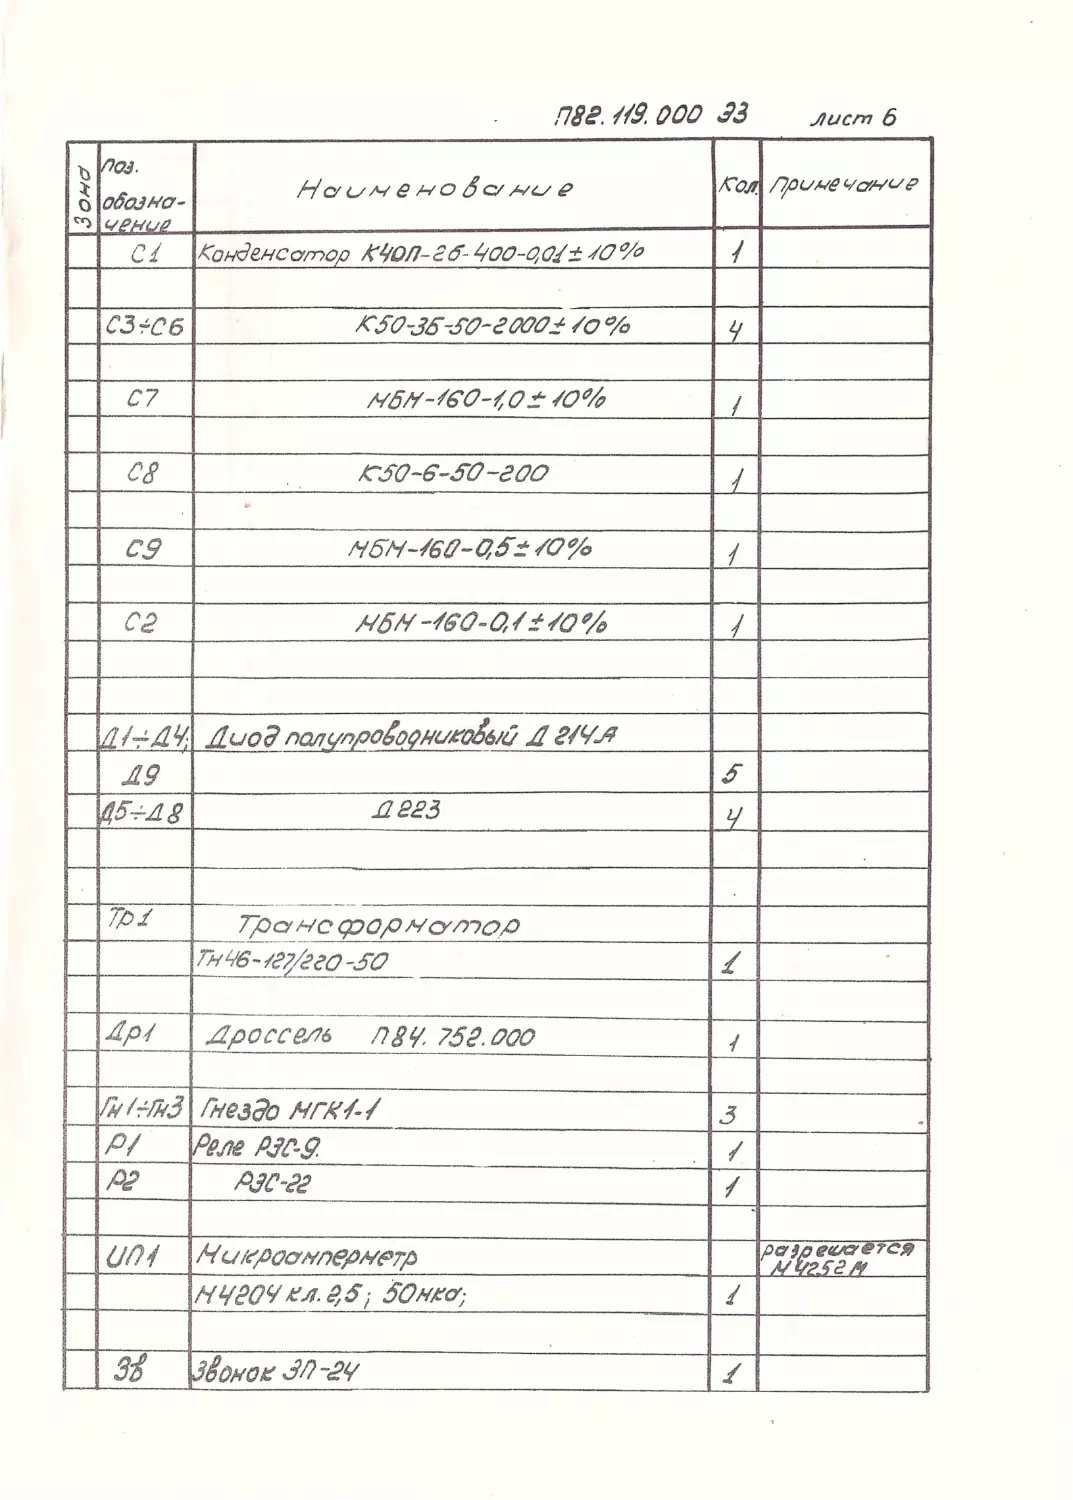 П82.119.000 Э3 лист 6
Зона Поз. обозна-чение Наименование Кол. Примечание
С1 Конденсатор К40П-2б-400-0,01±10% 1
С3÷С6 К50-3Б-50-2000±10% 4
С7 МБМ-160-1,0±10% 1
С8 К50-6-50-200 1
С9 МБМ-160-0,5±10% 1
С2 МБМ-160-0,1±10% 1
Д1÷Д4; Диод полупроводниковый Д 214А
Д9 5
Д5÷Д8 Д223 4
Тр1 Трансформатор
ТН46-127/220-50 1
Др1 Дроссель П84.752.000 1
Гн1÷Гн3 Гнездо МГК1-1 3
Р1 Реле РЭС-9. 1
Р2 РЭС-22 1
ИП1 Микроамперметр разрешается
М4252М
М4204 кл.2,5; 50мка; 1
Зв Звонок ЗП-24 1